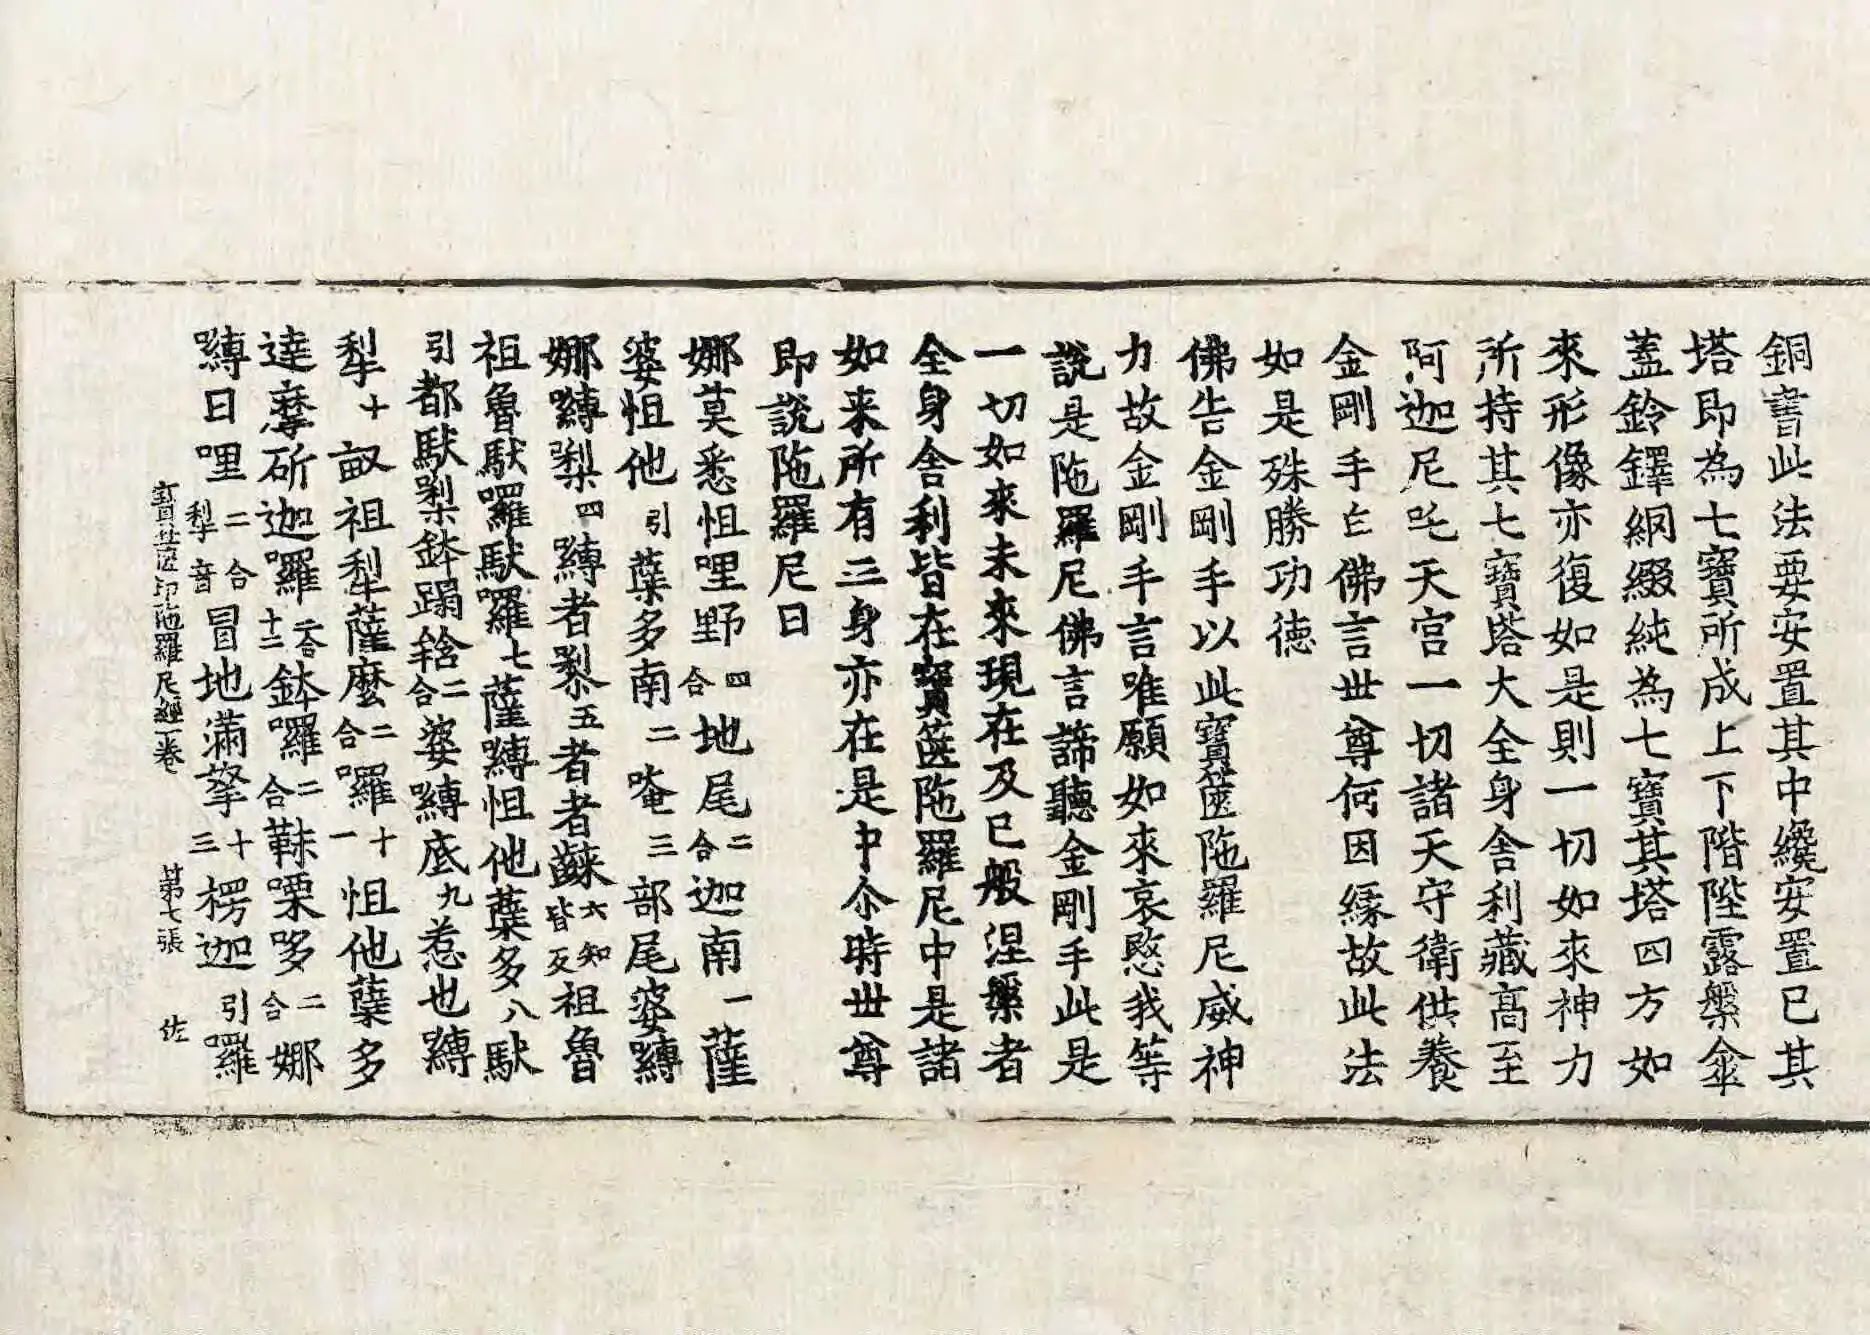 銅書此法要安置其中纔安置已其
塔即為七寶所成上下階陛露槃傘
蓋鈴鐸網綴純為七寶其塔四方如
來形像亦復如是則一切如來神力
所持其七寶塔大全身舍利藏高至
阿迦尼吒天宮一切諸天守衛供養
金剛手白佛言世尊何因緣故此法
如是殊勝功德
佛告金剛手以此寶篋陁羅尼威神
力故金剛手言唯願如來哀愍我等
說是陁羅尼佛言諦聽金剛手此是
一切如來未來現在及已般涅槃者
全身舍利皆在寶篋陁羅尼中是諸
如来所有三身亦在是中尒時世尊
即說陁羅尼曰
娜莫悉怛哩野四合地尾二合迦南一薩
婆怛他引蘖多南二唵三部尾婆嚩
娜嚩梨四嚩者梨五者者䚾六知皆反祖魯
祖魯馱囉馱囉七薩嚩怛他蘖多八馱
引都馱梨鉢蹋𤚥二合婆嚩底九惹也嚩
犁十𭆰祖犁薩麼二合囉十一怛他蘖多
達摩斫迦囉二合十二鉢囉二合靺㗚哆二合娜
嚩日哩二合犁音冒地滿拏十三楞迦引囉
寶篋印陁羅尼經一卷 第七張 佐